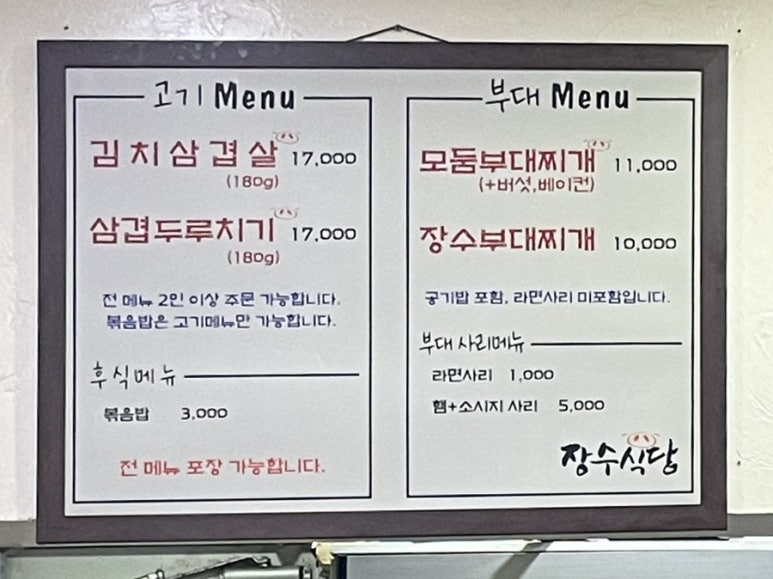 고기 Menu
김치삼겹살 17,000
(180g)
삼겹두루치기 17,000
(180g)
전 메뉴 2인 이상 주문 가능합니다.
볶음밥은 고기메뉴만 가능합니다.
후식메뉴
볶음밥 3,000
전 메뉴 포장 가능합니다.
부대 Menu
모둠부대찌개 11,000
(+버섯,베이컨)
장수부대찌개 10,000
공기밥 포함, 라면사리 미포함입니다.
부대 사리메뉴
라면사리 1,000
햄+소시지 사리 5,000
장수식당